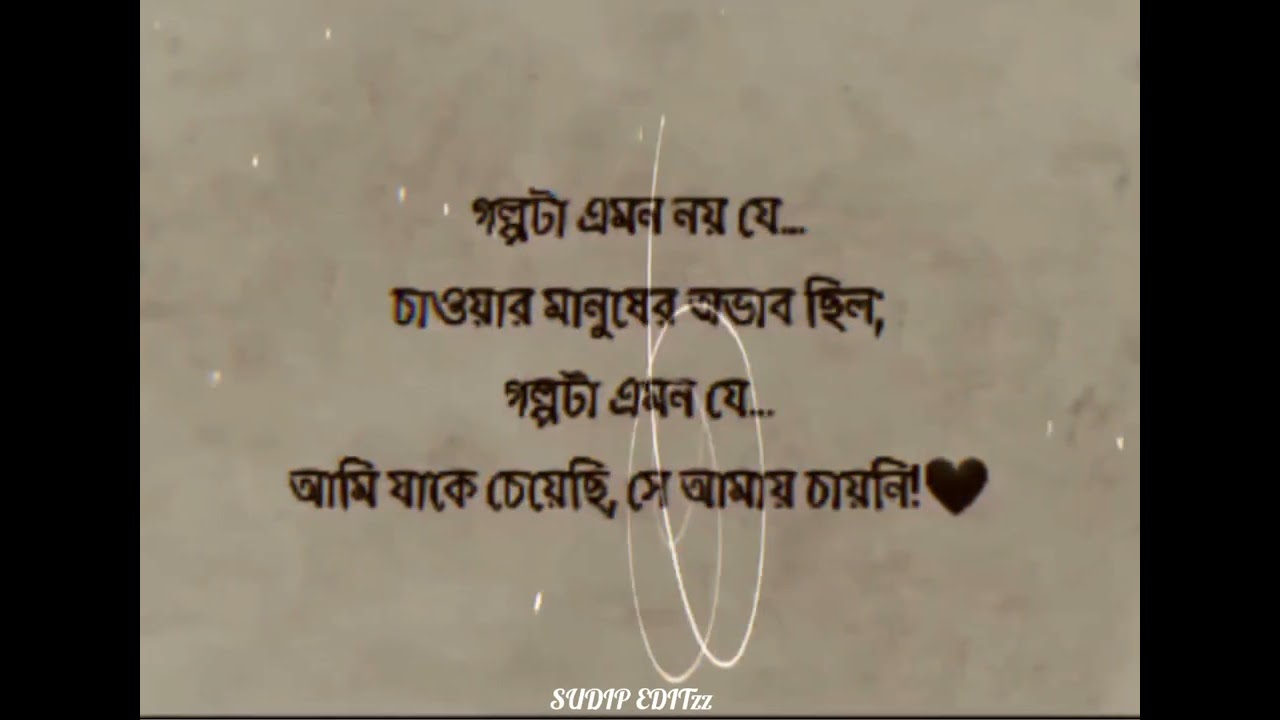 গল্পটা এমন নয় যে...
চাওয়ার মানুষের অভাব ছিল;
গল্পটা এমন যে...
আমি যাকে চেয়েছি, সে আমায় চায়নি!🖤
SUDIP EDITzz